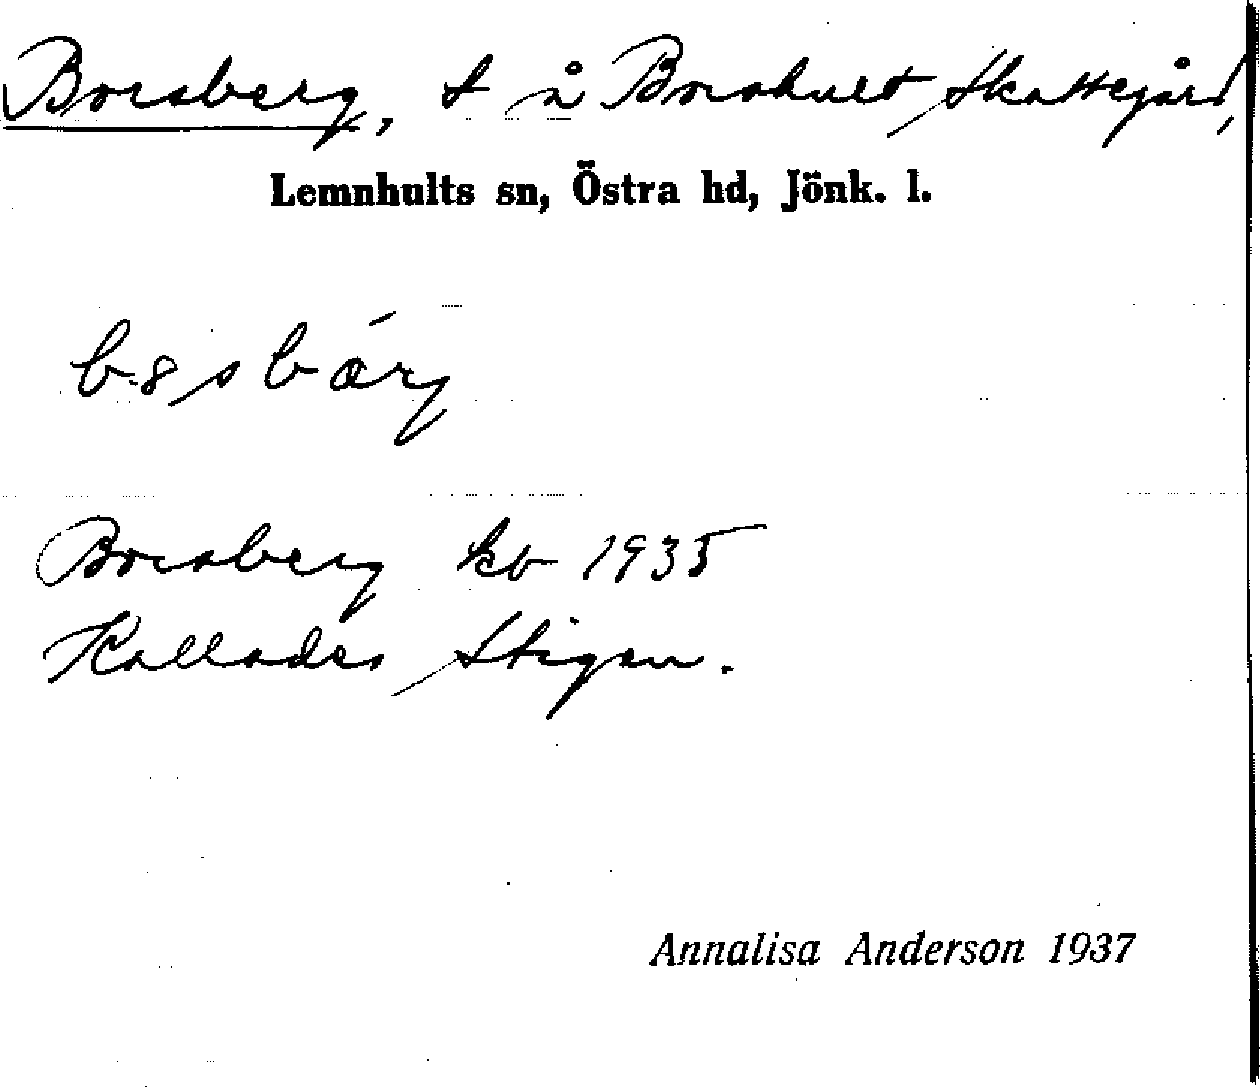 Borsberg, t å Borshult Skattegård,
Lemnhults sn, Östra hd, Jönk. l.
Borsberg kb 1935
Kallades Stigen.
Annalisa Anderson 1937